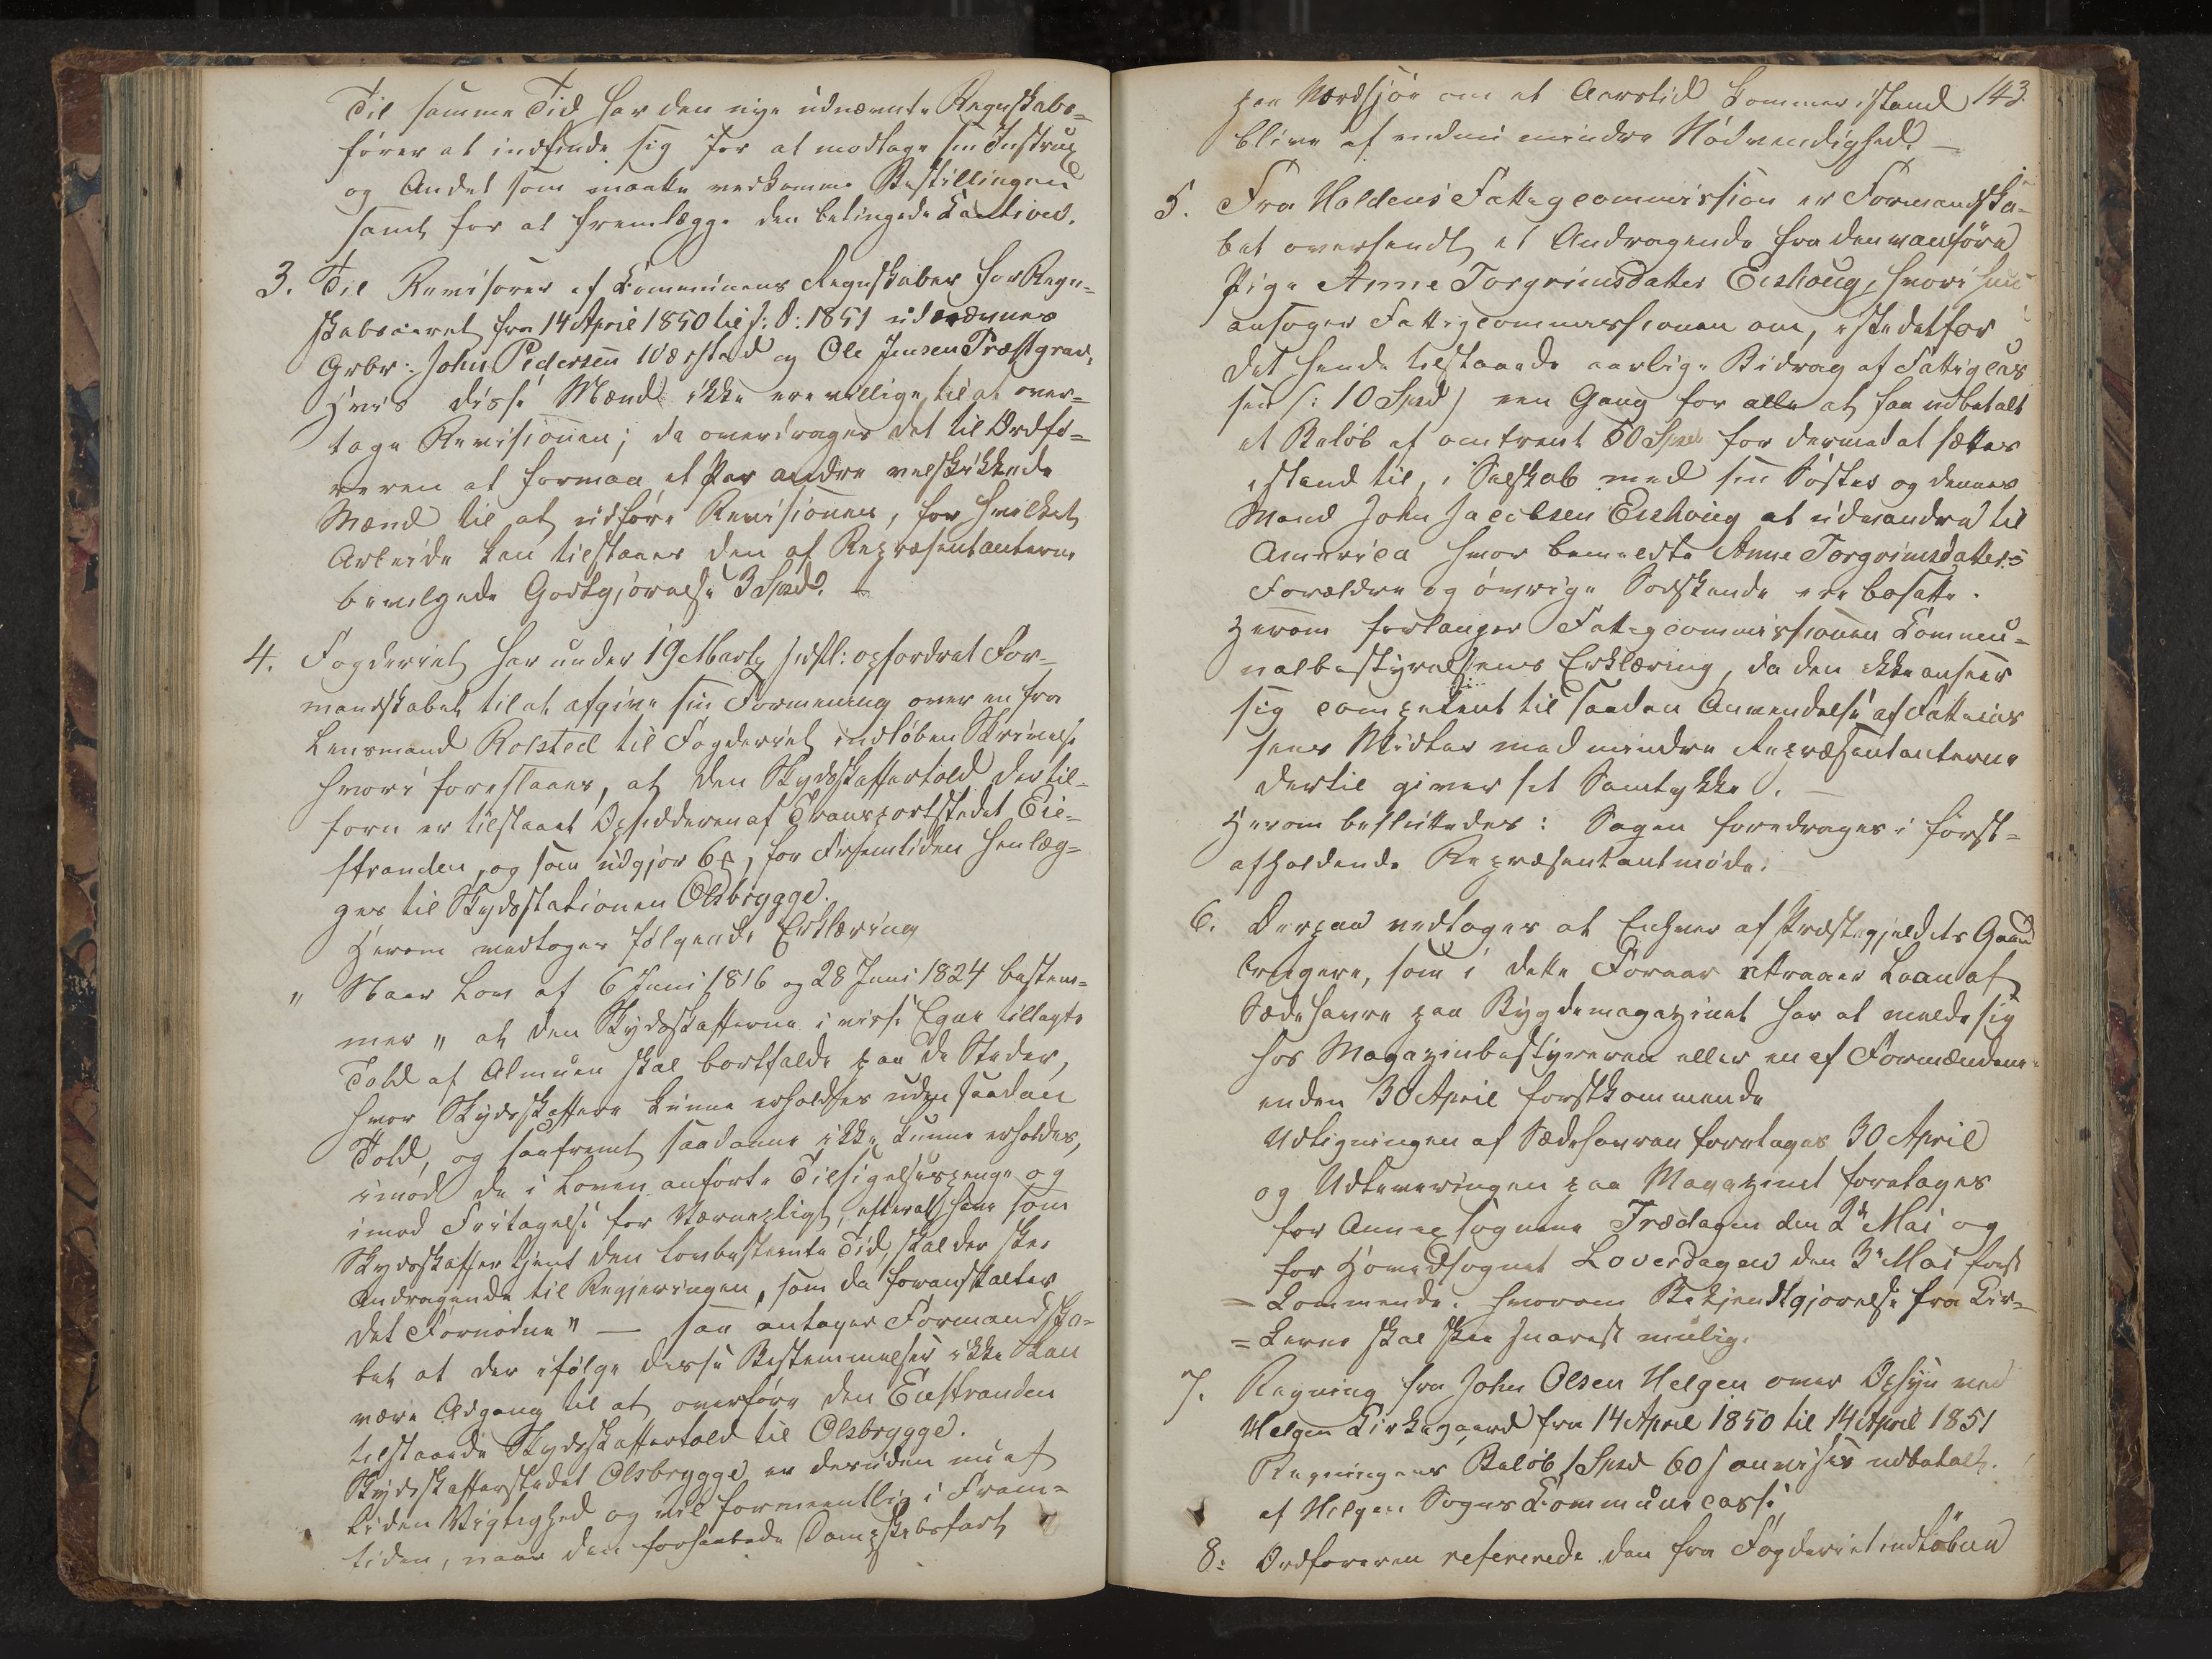 Til samme Tid har den nye udnævnte Regnskabs=
fører at indfinde sig for at modtage sin Instrux
og Andet som maatte vedkomme Bestillingen
samt for at fremlægge den betingede Caution.
3. Til Revisorer af Communens Regnskaber for Regn=
skabsaaret fra 14 April 1850 til s: D: 1851 udnævnes
Grbr: John Pedersen Værstad og Ole Jensen Præstgrav.
Hvis disse Mænd ikke ere villige til at over=
tage Revisionen; da overdrages det til Ordfø=
reren at formaa et Par andre velskikkede
Mænd til at udføre Revisionen, for hvilket
Arbeide kan tilstaaes den af Repræsentanterne
bevilgede Godtgjørelse 3 Spd.
4. Fogderiet har under 19 Marts sidstl: opfordret For=
mandskabet til at afgive sin Formening over en fra
Lensmand Rolsted til Fogderiet indløben Skrivelse
hvori foreslaaes, at den Skydsskaffertold der til=
forn er tilstaaet Opsidderen af Transportstedet Eie=
stranden, og som udgjør 6 ß, for Fremtiden henlæg=
ges til Skydsstationen Olsbrygge.
Herom vedtoges følgende Erklæring
" Naar Lov af 6 Juni 1816 og 28 Juni 1824 bestem=
mer " at den Skydsskafferne i visse Egne tillagte
Told af Almuen skal bortfalde paa de Steder,
hvor Skydsskaffere kunne erholdes uden saadan
Told, og saafremt saadanne ikke kunne erholdes,
imod de i Loven anførte Tilsigelsespenge og
imod Fritagelse for Værnepligt, efter at have som
Skydsskaffer tjent den lovbestemte Tid, skal der skee
Andragende til Regjeringen, som da foranstalter
det Fornødne" — saa antager Formandska=
bet at der ifølge disse Bestemmelser ikke kan
være Adgang til at overføre den Eiestranden
tilstaaede Skydsskaffertold til Olsbrygge.
Skydsskafferstedet Olsbrygge er desuden nu af
liden Vigtighed og vil formeentlig i Frem=
tiden, naar den forhaabede Dampskibsfart
143.
paa Nordsjø om et Aarstid kommer istand
blive af endnu mindre Nødvendighed. —
5. Fra Holdens Fattigcommission er Formandska=
bet oversendt et Andragende fra den vanføre
Pige Anne Torgrimsdatter Eeshoug, hvori hun
ansøger Fattigcommissionen om, istedetfor
det hende tilstaaede aarlige Bidrag af Fattigcas
sen (: 10 Spd) een Gang for alle at faa udbetalt
et Beløb af omtrent 50 Spd for dermed at sættes
istand til, i Selskab med sin Søster og dennes
Mand John Jacobsen Eeshoug at udvandre til
America hvor bemeldte Anne Torgrimsdatters
Forældre og øvrige Sødskende ere bosatte.
Herom forlanger Fattigcommissionen Commu=
nalbestyrelsens Erklæring, da den ikke anseer
sig competent til saadan Anvendelse af Fattigcas
sens Midler med mindre Repræsentanterne
dertil giver sit Samtykke. —
Herom besluttedes: Sagen foredrages i først=
afholdende Repræsentantmøde.
6. Derpaa vedtoges at Enhver af Præstegjeldets Gaard
brugere, som i dette Foraar attraaer Laan af
Sædehavre paa Bygdemagazinet har at melde sig
hos Magazinbestyreren eller en af Formændene
inden 30 April førstkommende
Udligningen af Sædehavren foretages 30 April
og Udleveringen paa Magazinet foretages
for Annexsognene Fredagen den 2de Mai og
for Hovedsognet Løverdagen den 3die Mai først
= kommende. hvorom Bekjendtgjørelse fra Kir=
= kerne skal skee snarest mulig.
7. Regning fra John Olsen Helgen over Opsyn ved
Helgen Kirkegaard fra 14 April 1850 til 14 April 1851
Regningens Beløb 1 Spd 60 ß anvises udbetalt
af Helgen Sogns Communecasse
8: Ordføreren refererede den fra Fogderiet indløbne